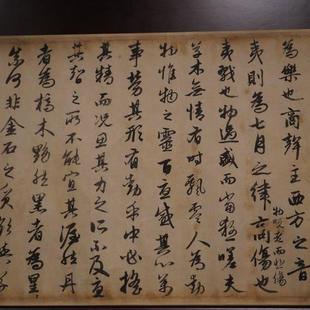 為樂也商聲主西方之音
夷則為七月之律商傷也
物既老而悲傷
夷戮也物過盛而當殺嗟夫
草木無情有時飄零人為動
物惟物之靈百憂感其心萬
事勞其形有動乎中必搖
其精而況思其力之所不及憂
其智之所不能宜其渥然丹
者為槁木黟然黑者為星
奈何非金石之質欲與草